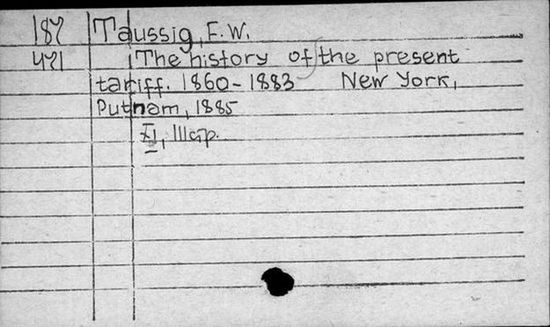 187 Taussig, F. W.
471 The history of the present
tariff. 1860-1883 New York,
Putnam, 1885
XI, 111 стр.